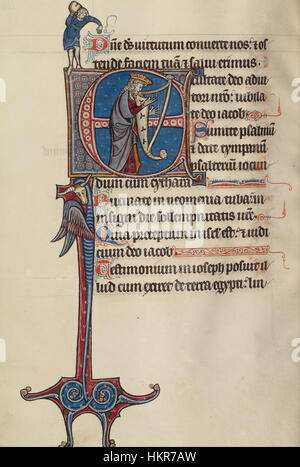 Dñe ds uirtutum conuerte nos: ⁊ os
tende faciem tuã ⁊ salui erimus
E
xultate deo adiu
tori nr̃o: iubila
te deo iacob
Sumite psalmũ
⁊ date tympanũ
psalterium iocun
dum cum cythara
Buccinate in neomenia tuba: in
insigni die sollempnitatis
Quia preceptum in isrł est: ⁊ iudi
cium deo iacob
Testimonium in ioseph posuit il
lud cum exiret de terra egypti: lin
a
a
alamy stock photo
HKR7AW
www.alamy.com